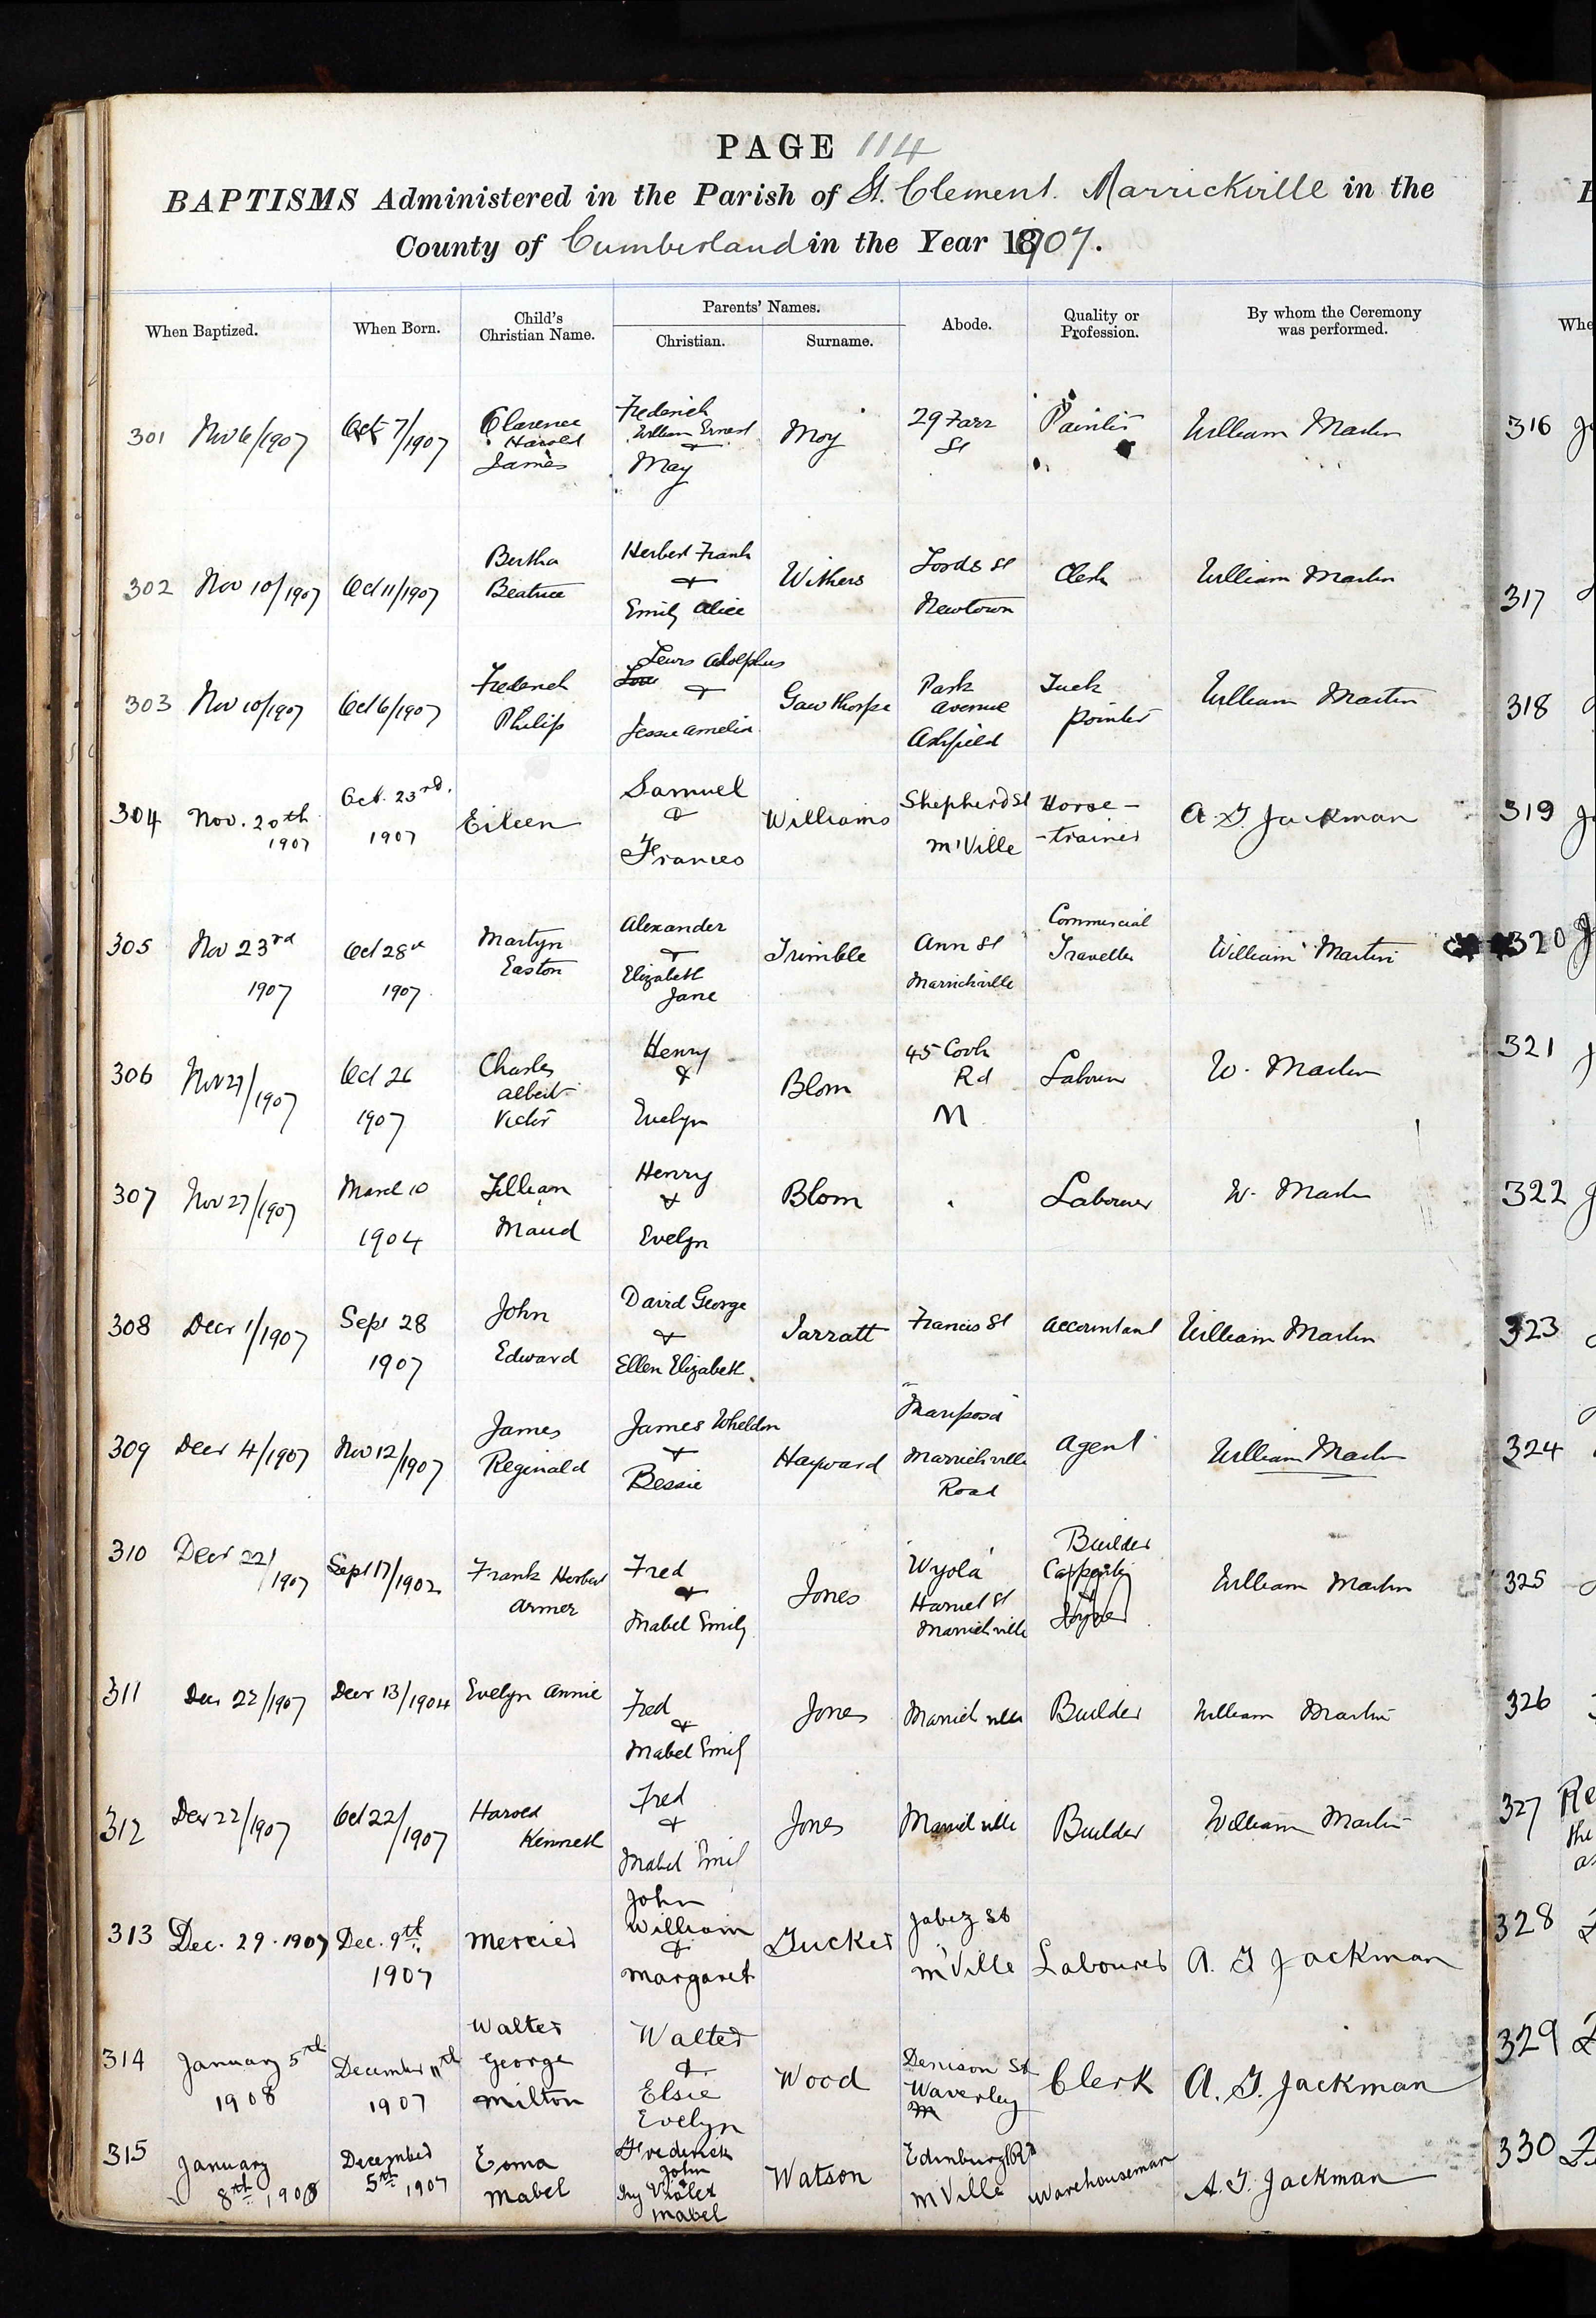 PAGE 114
BAPTISMS Administered in the Parish of St. Clement. Marrickville in the
County of Cumberland in the Year 1907.
When Baptized. When Born. Child's Christian Name. Parents' Names. Christian. Surname. Abode. Quality or Profession. By whom the Ceremony was performed.
301 Nov 6/1907 Oct 7/1907 Clarence Harold James Frederick William Ernest & May Moy 29 Farr St Painter William Martin
302 Nov 10/1907 Oct 11/1907 Bertha Beatrice Herbert Frank & Emily Alice Withers Lords St Newtown Clerk William Martin
303 Nov 10/1907 Oct 6/1907 Frederick Philip Lewis Adolphus & Jessie Amelia Gawthorpe Park Avenue Ashfield Tuck pointer William Martin
304 Nov. 20th 1907 Oct. 23rd. 1907 Eileen Samuel & Frances Williams Shepherd St M'Ville Horse- -trainer A. G. Jackman
305 Nov 23rd 1907 Oct 28th 1907 Martyn Easton Alexander & Elizabeth Jane Trimble Ann St Marrickville Commercial Traveller William Martin
306 Nov 27/1907 Oct 26 1907 Charles Albert Victor Henry & Evelyn Blom 45 Cook Rd M Labourer W. Martin
307 Nov 27/1907 March 10 1904 Lillian Maud Henry & Evelyn Blom Labourer W. Martin
308 Decr 1/1907 Sept 28 1907 John Edward David George & Ellen Elizabeth Jarratt Francis St Accountant William Martin
309 Decr 4/1907 Nov 12/1907 James Reginald James Wheldon & Bessie Hayward "Mariposa" Marrickville Road Agent William Martin
310 Decr 22/1907 Sept 17/1902 Frank Herbert Armer Fred & Mabel Emily Jones 'Wyola' Harriet St Marrickville Builder William Martin
311 Decr 22/1907 Decr 13/1904 Evelyn Annie Fred & Mabel Emily Jones Marrickville Builder William Martin
312 Decr 22/1907 Oct 22/1907 Harold Kenneth Fred & Mabel Emily Jones Marrickville Builder William Martin
313 Dec. 29. 1907 Dec. 9th 1907 Mercier John William & Margaret Tucker Jabez St M'Ville Labourer A. G. Jackman
314 January 5th 1908 December 11th 1907 Walter George Milton Walter & Elsie Evelyn Wood Denison St Waverley Clerk A. G. Jackman
315 January 8th 1908 December 5th 1907 Esma Mabel Frederick John & Ivy Violet Mabel Watson Edinburgh Rd M'Ville Warehouseman A. G. Jackman
316
317
318
319
320
321
322
323
324
325
326
327
328
329
330